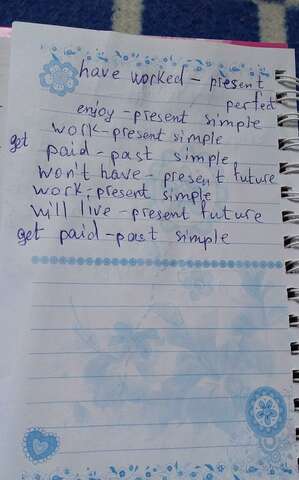 have worked - present
perfect
enjoy - present simple
work - present simple
get paid - past simple
won't have - present future
work - present simple
will live - present future
get paid - past simple